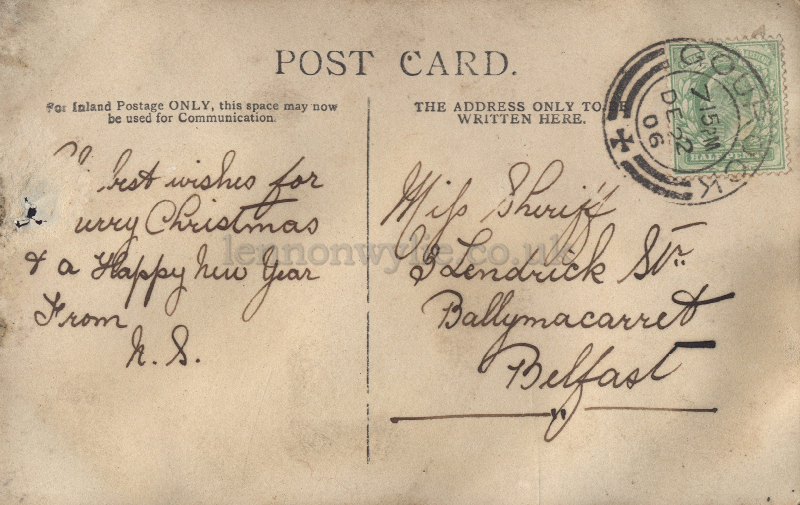 POST CARD.
For Inland Postage ONLY, this space may now
be used for Communication.
THE ADDRESS ONLY TO BE
WRITTEN HERE.
best wishes for
urry Christmas
& a Happy New Year
From
N. S.
Miss Sheriff
3 Lendrick Str.
Ballymacarret
Belfast
GOUROCK
7 15 PM
DE 22
06
HALF
lennonwylie.co.uk